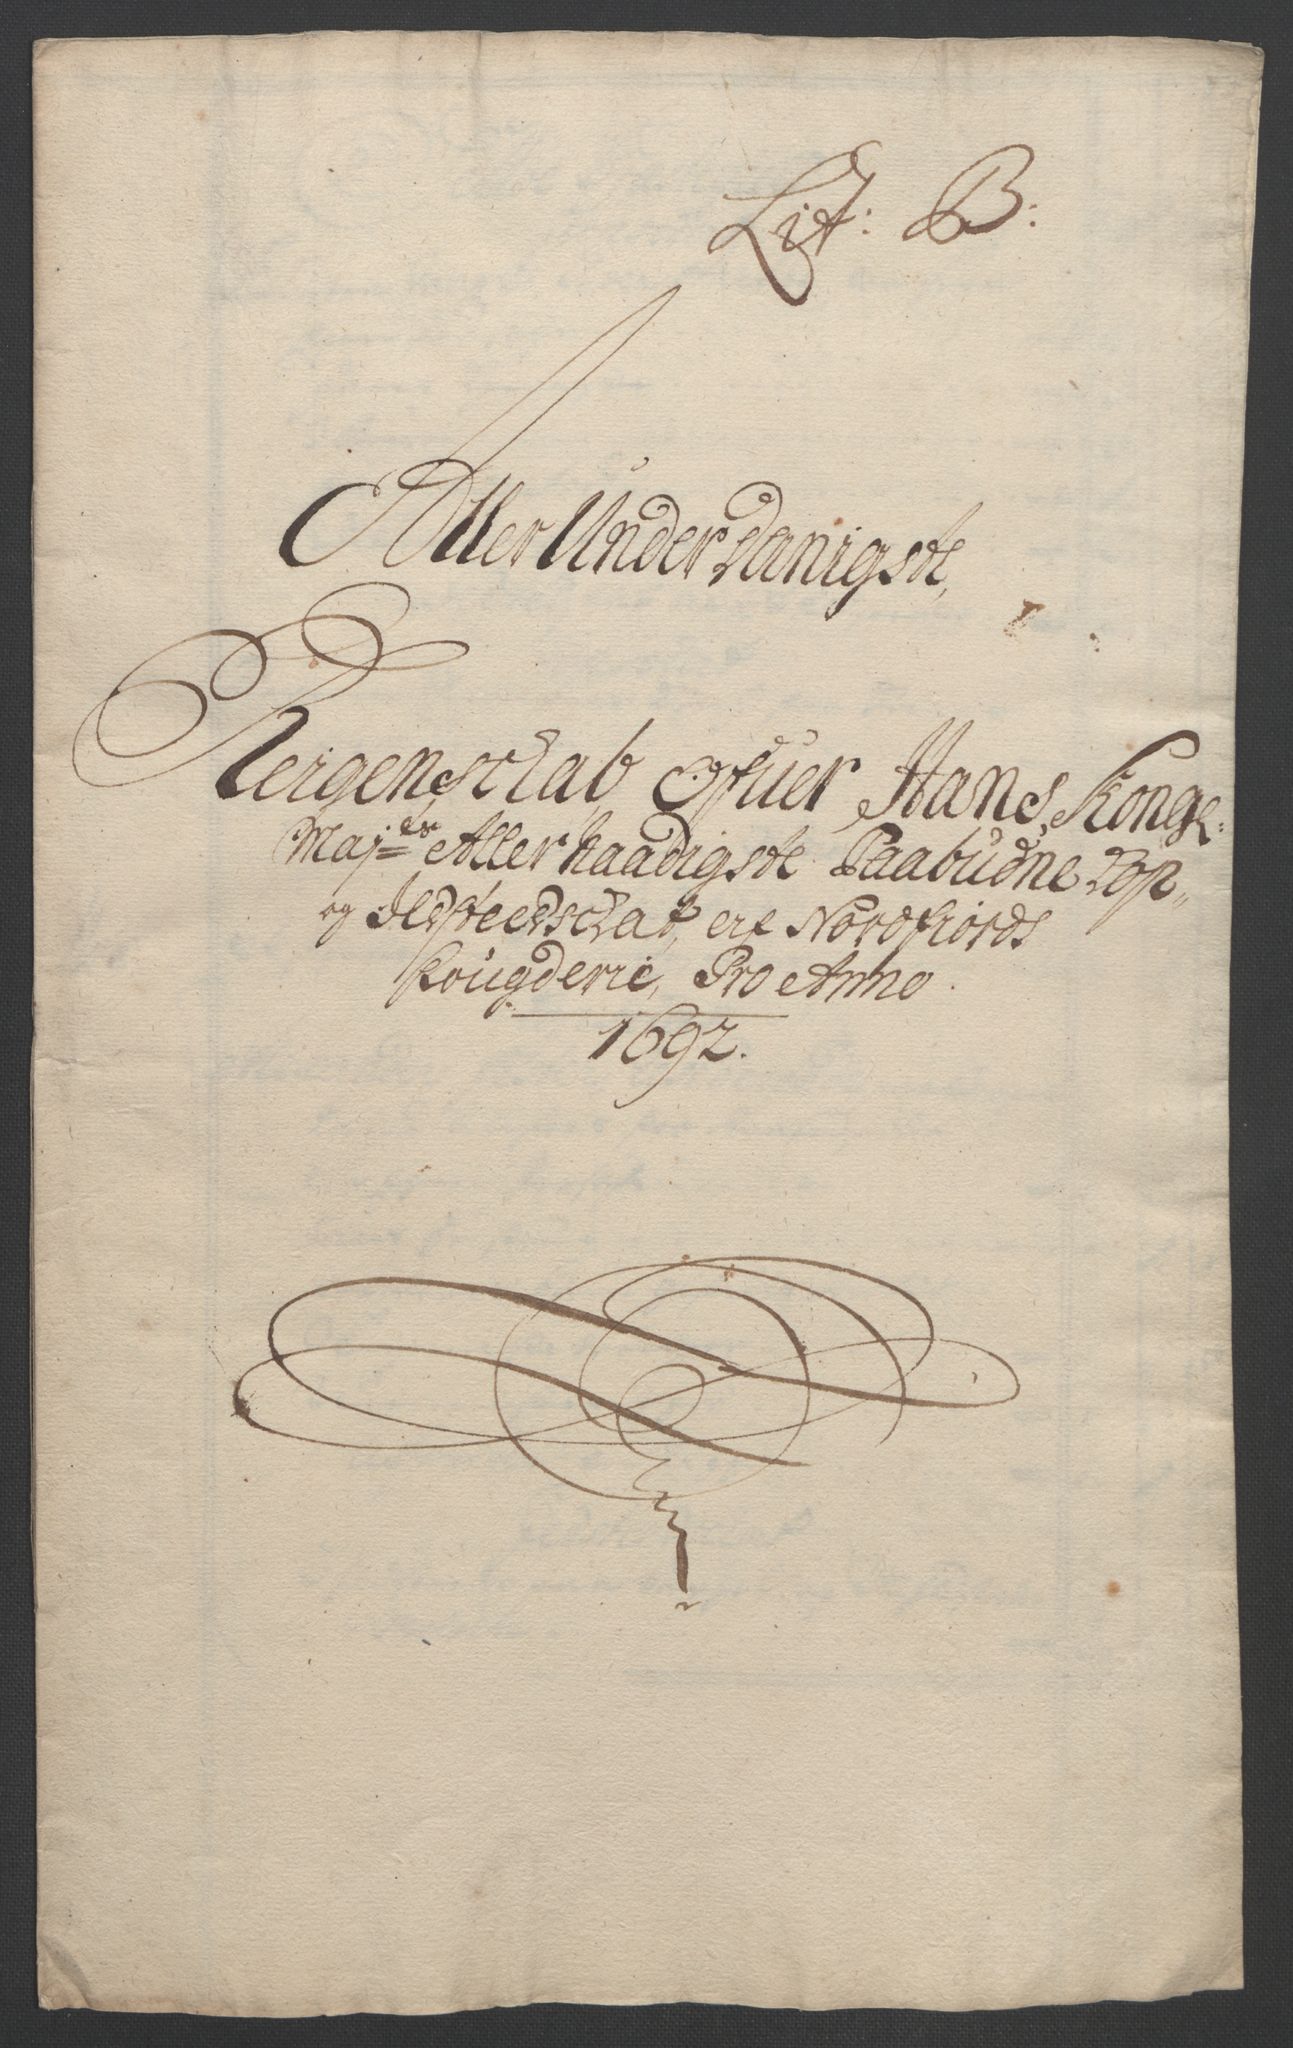 Lit: B:
Aller Underdanigste,
Reigenschab ofuer Hans Kongl:
Maj:es Aller Naadigste Paabudne Kop,,
og Ildsteedschat, af Nordfiords
Fougderie, Pro Anno
1692.